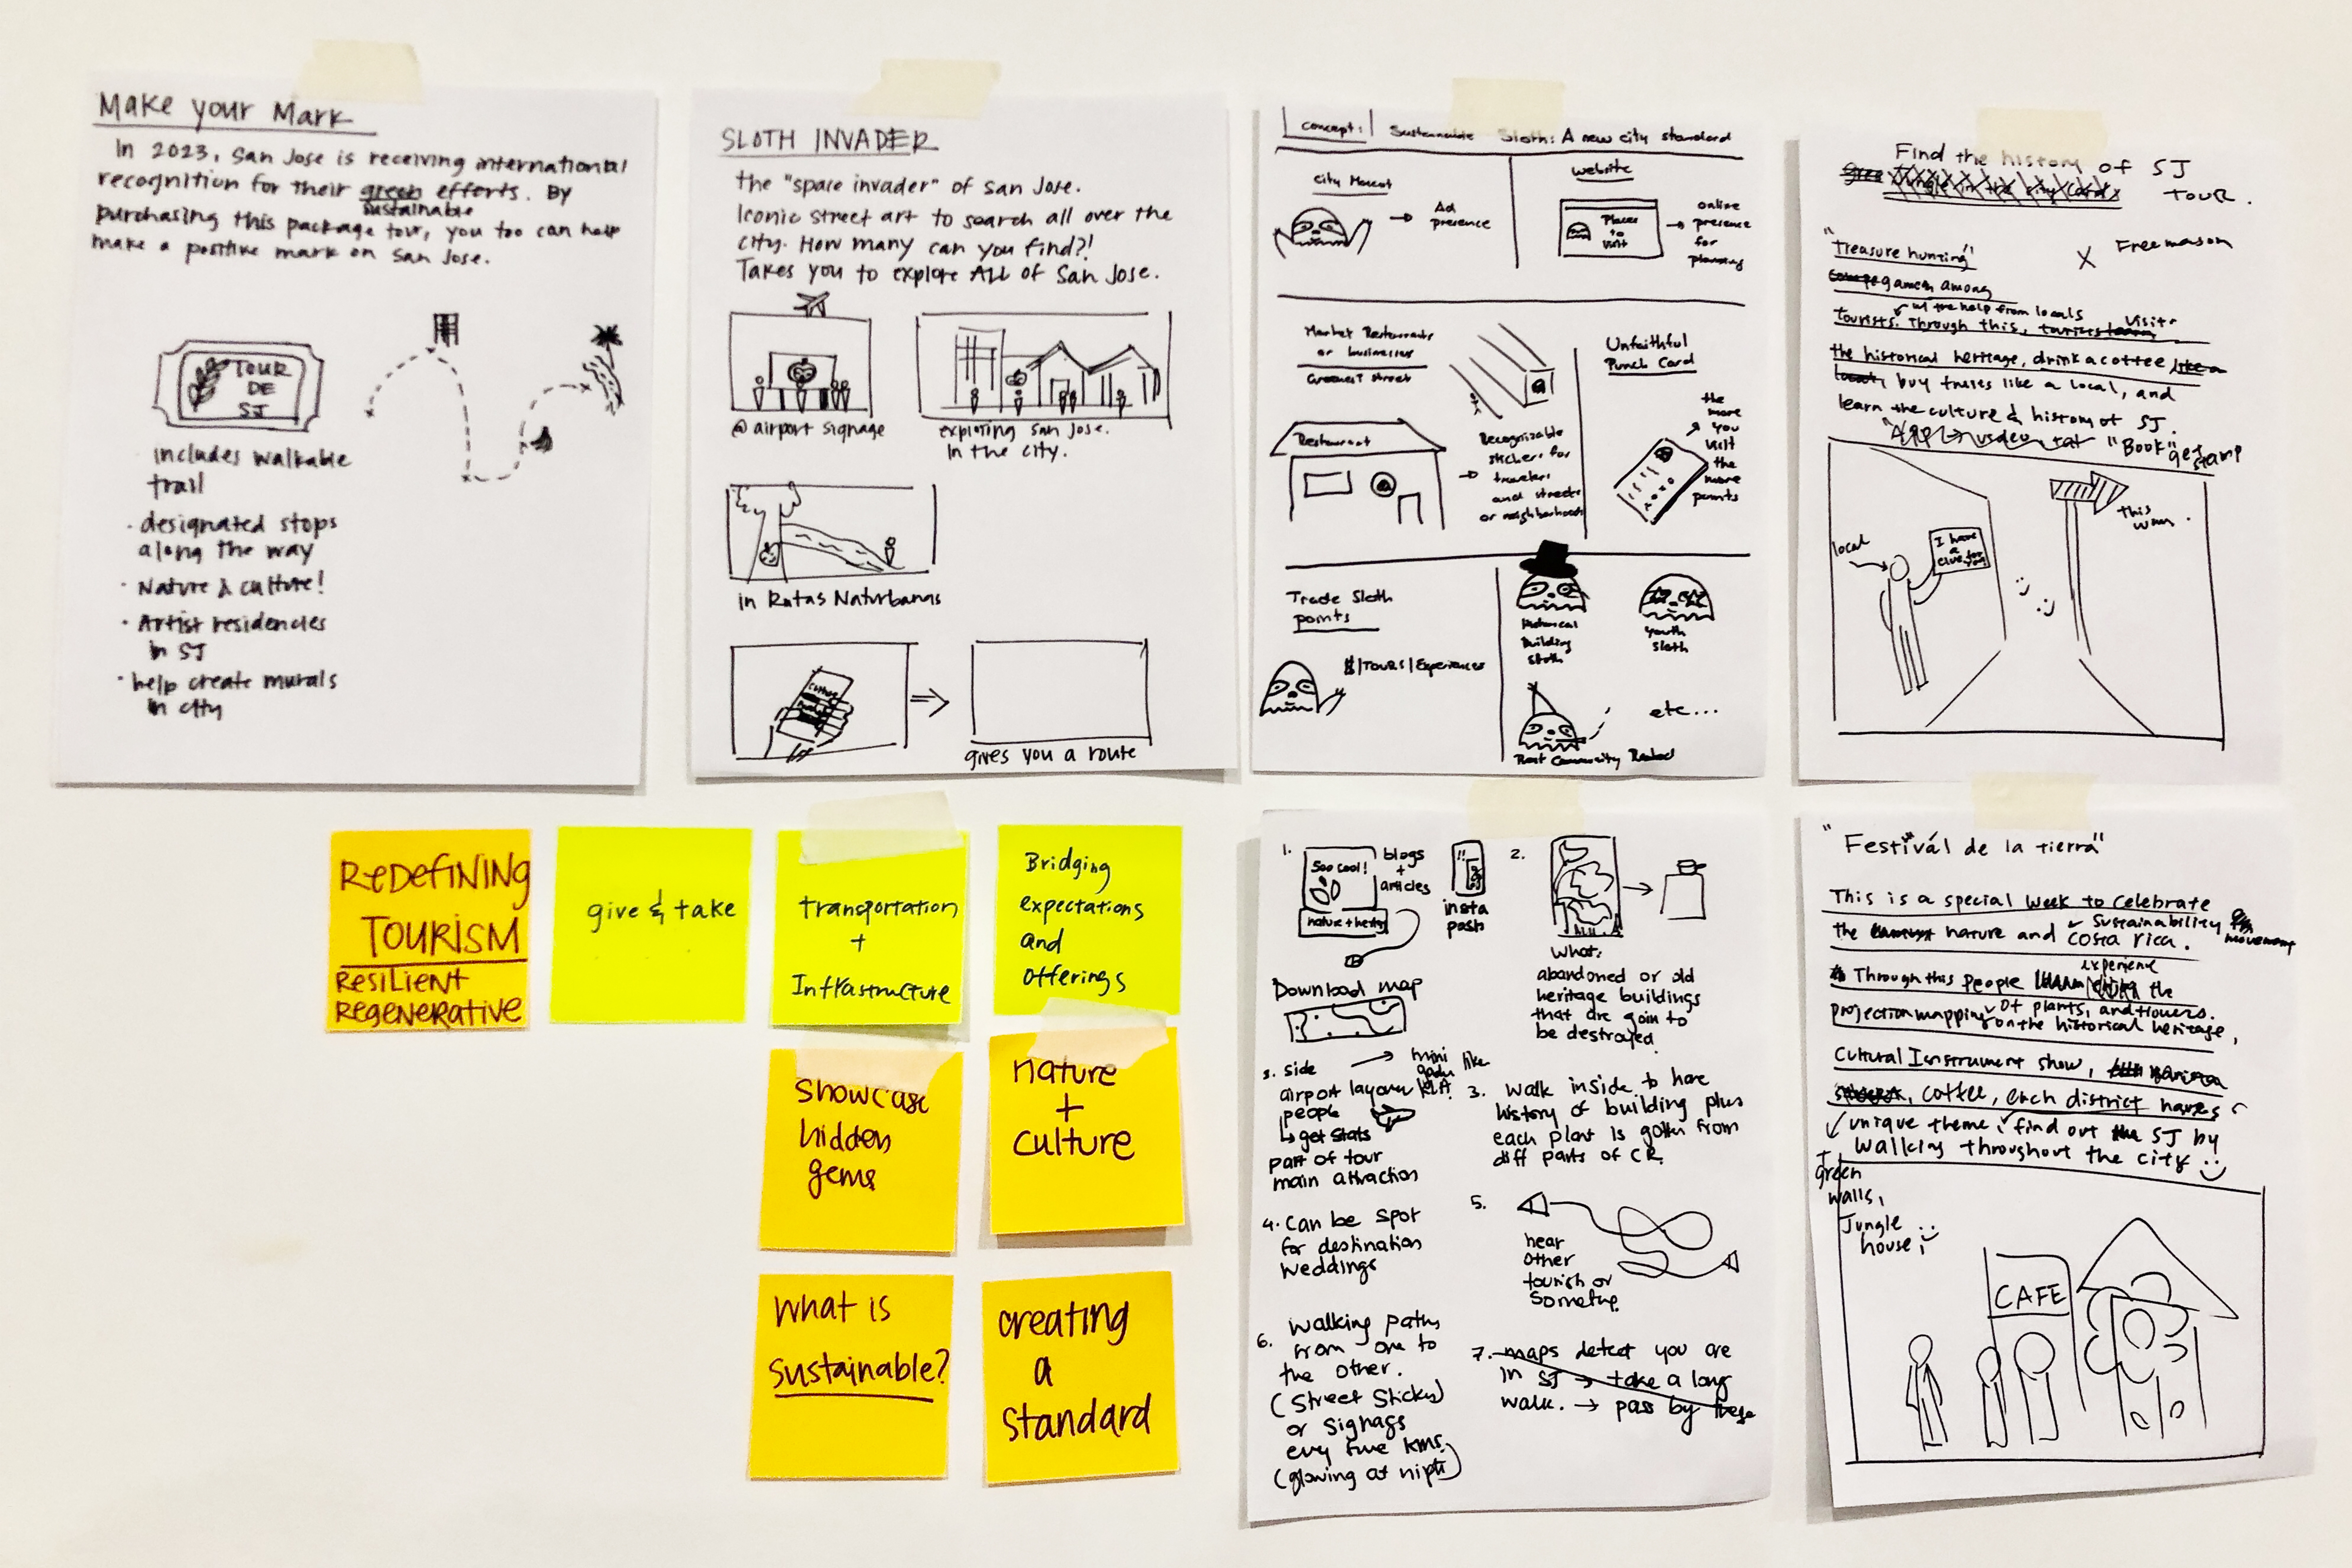 Make your Mark
In 2023, San Jose is receiving international
recognition for their green efforts. By
sustainable
purchasing this package tour, you too can help
make a positive mark on San Jose.
TOUR
DE
SJ
includes walkable
trail
· designated stops
along the way
· Nature & culture!
· Artist residencies
in SJ
· help create murals
in city
SLOTH INVADER
the "space invader" of San Jose.
Iconic street art to search all over the
city. How many can you find?!
Takes you to explore ALL of San Jose.
@ airport signage
exploring San Jose.
In the city.
in Rutas Naturbanas
gives you a route
Concept: Sustainable Sloth: A new city standard
City Mascot
Ad
presence
Website
Places
to
visit
online
presence
for
planning
Market Restaurants
or businesses
Greenest street
Restaurant
Recognizable
stickers for
travelers
and streets
or neighborhoods
Unfaithful
Punch Card
the
more
you
visit
the
more
points
Trade Sloth
points
$|TOURS|Experiences
Historical
Building
Sloth
Youth
Sloth
etc...
Find the history of SJ
Tour.
"Treasure hunting"
X Freemason
games among
w/ the help from locals
tourists. Through this, tourists visit
the historical heritage, drink a coffee like a
local, buy fruits like a local, and
learn the culture & history of SJ.
"Book" get stamp
local
I have
a
clue for
you
this
way.
REDEFINING
TOURISM
RESILIENT
REGENERATIVE
give & take
transportation
+
Infrastructure
Bridging
expectations
and
offerings
Showcase
hidden
gems
nature
+
culture
What is
sustainable?
creating
a
standard
1.
Soo cool!
blogs
+
articles
insta
posts
Download map
2.
What:
abandoned or old
heritage buildings
that are goin to
be destroyed.
3. side
mini
like
airport layover
people
get stats
part of tour
main attraction
3. Walk inside to hare
history of building plus
each plant is gotten from
diff parts of CR.
4. Can be spot
for destination
weddings
5.
hear
other
tourish or
6. Walking paths
from one to
the other.
(Street Sticky)
or signags
evry five kms.
(glowing at night)
7. maps detect you are
in SJ → take a long
walk. → pass by these
"Festivál de la tierra"
This is a special week to celebrate
the nature and sustainability movement
costa rica.
Through this people experience the
projection mapping of plants, and flowers.
on the historical heritage,
Cultural Ienstrument show,
coffee, each district haves
unique theme, find out SJ by
walking throughout the city
+
green
walls,
Jungle
house
CAFE